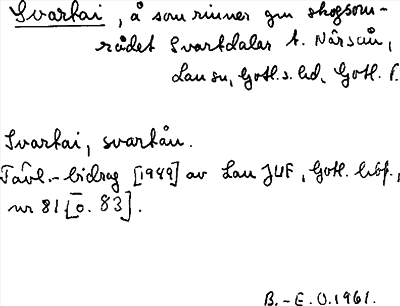 Svartai, å som rinner gm skogsom-
rådet Svartdalar t. Närsån,
Lau sn, Gotl. s. hd, Gotl. l.
Svartai, svartån.
Tävl.-bidrag [1949] av Lau JUF, Gotl. bibl.,
nr 81 [o. 83].
B.-E. O. 1961.